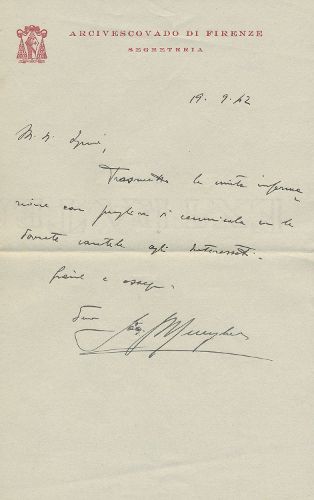 ARCIVESCOVADO DI FIRENZE
SEGRETERIA
19. 9. 42
Trasmetto le unite informa
zione con preghiera di comunicarle con le
dovute cautele agli interessati.
Grazie e ossequi.
Suo